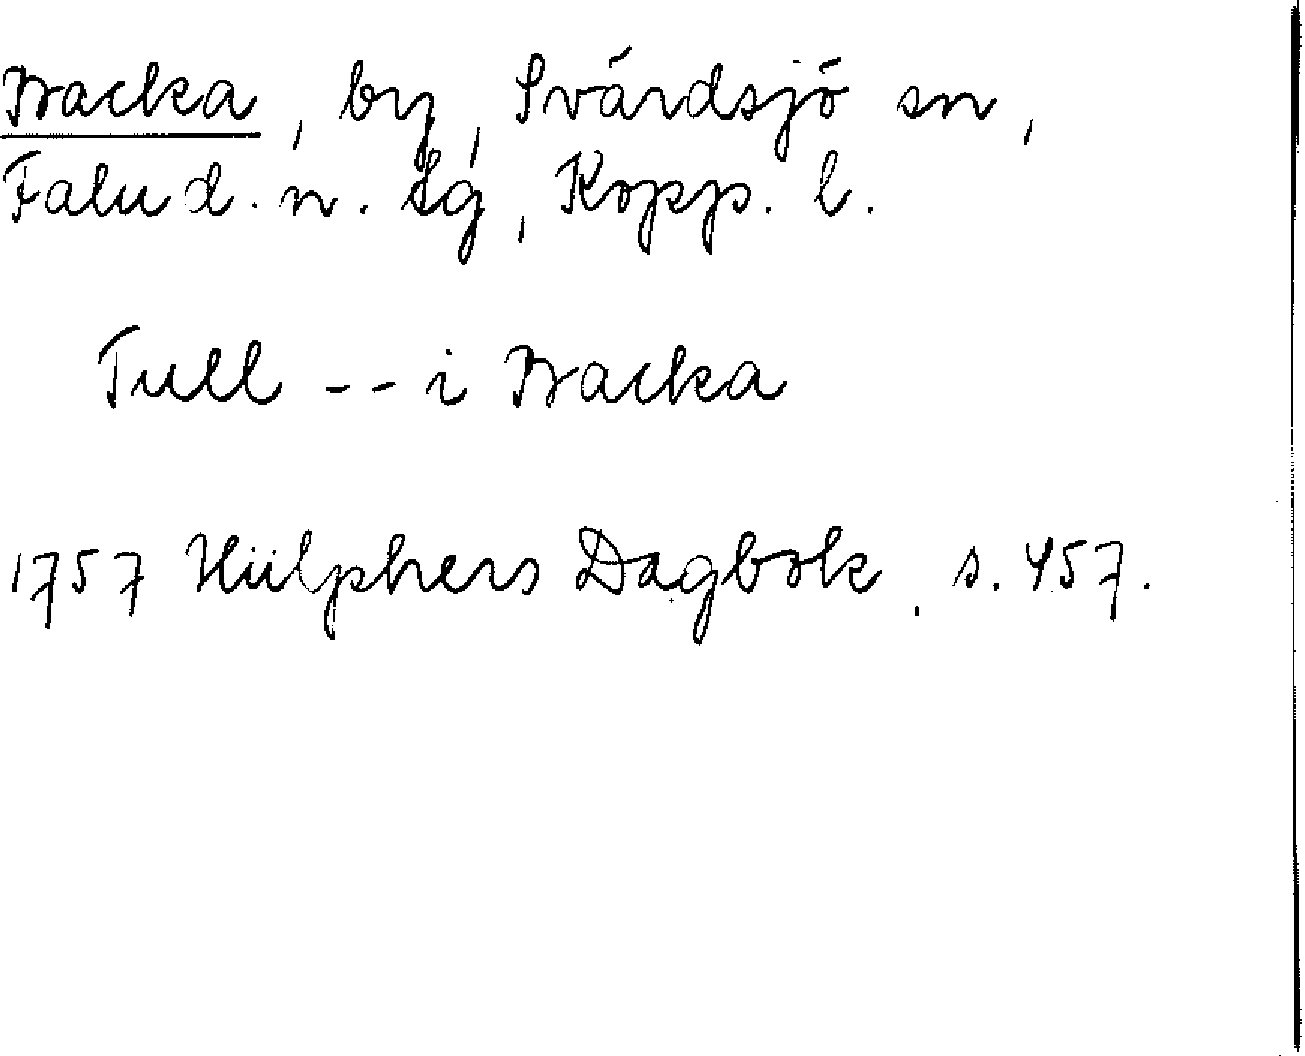 Backa, by, Svärdsjö sn,
Falu d. n. lg, Kopp. l.
Tull -- i Backa
1757 Hülphers Dagbok, s. 457.